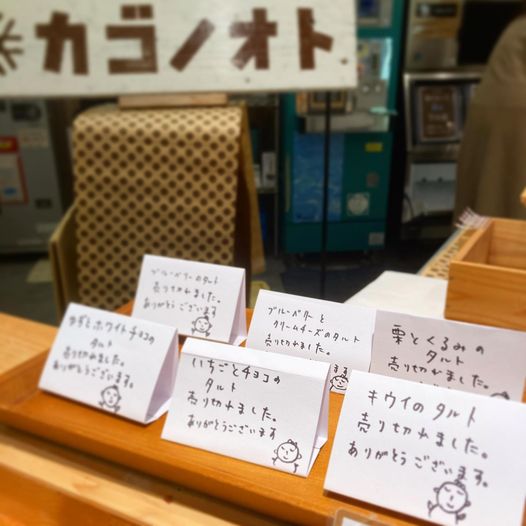 カゴノオト
ブルーベリーのタルト
売り切れました。
ありがとうございます
ゆずとホワイトチョコの
タルト
売り切れました。
ありがとうございます。
ブルーベリーと
クリームチーズのタルト
売り切れました。
栗とくるみの
タルト
売り切れました。
いちごとチョコの
タルト
売り切れました。
ありがとうございます
キウイのタルト
売り切れました。
ありがとうございます。